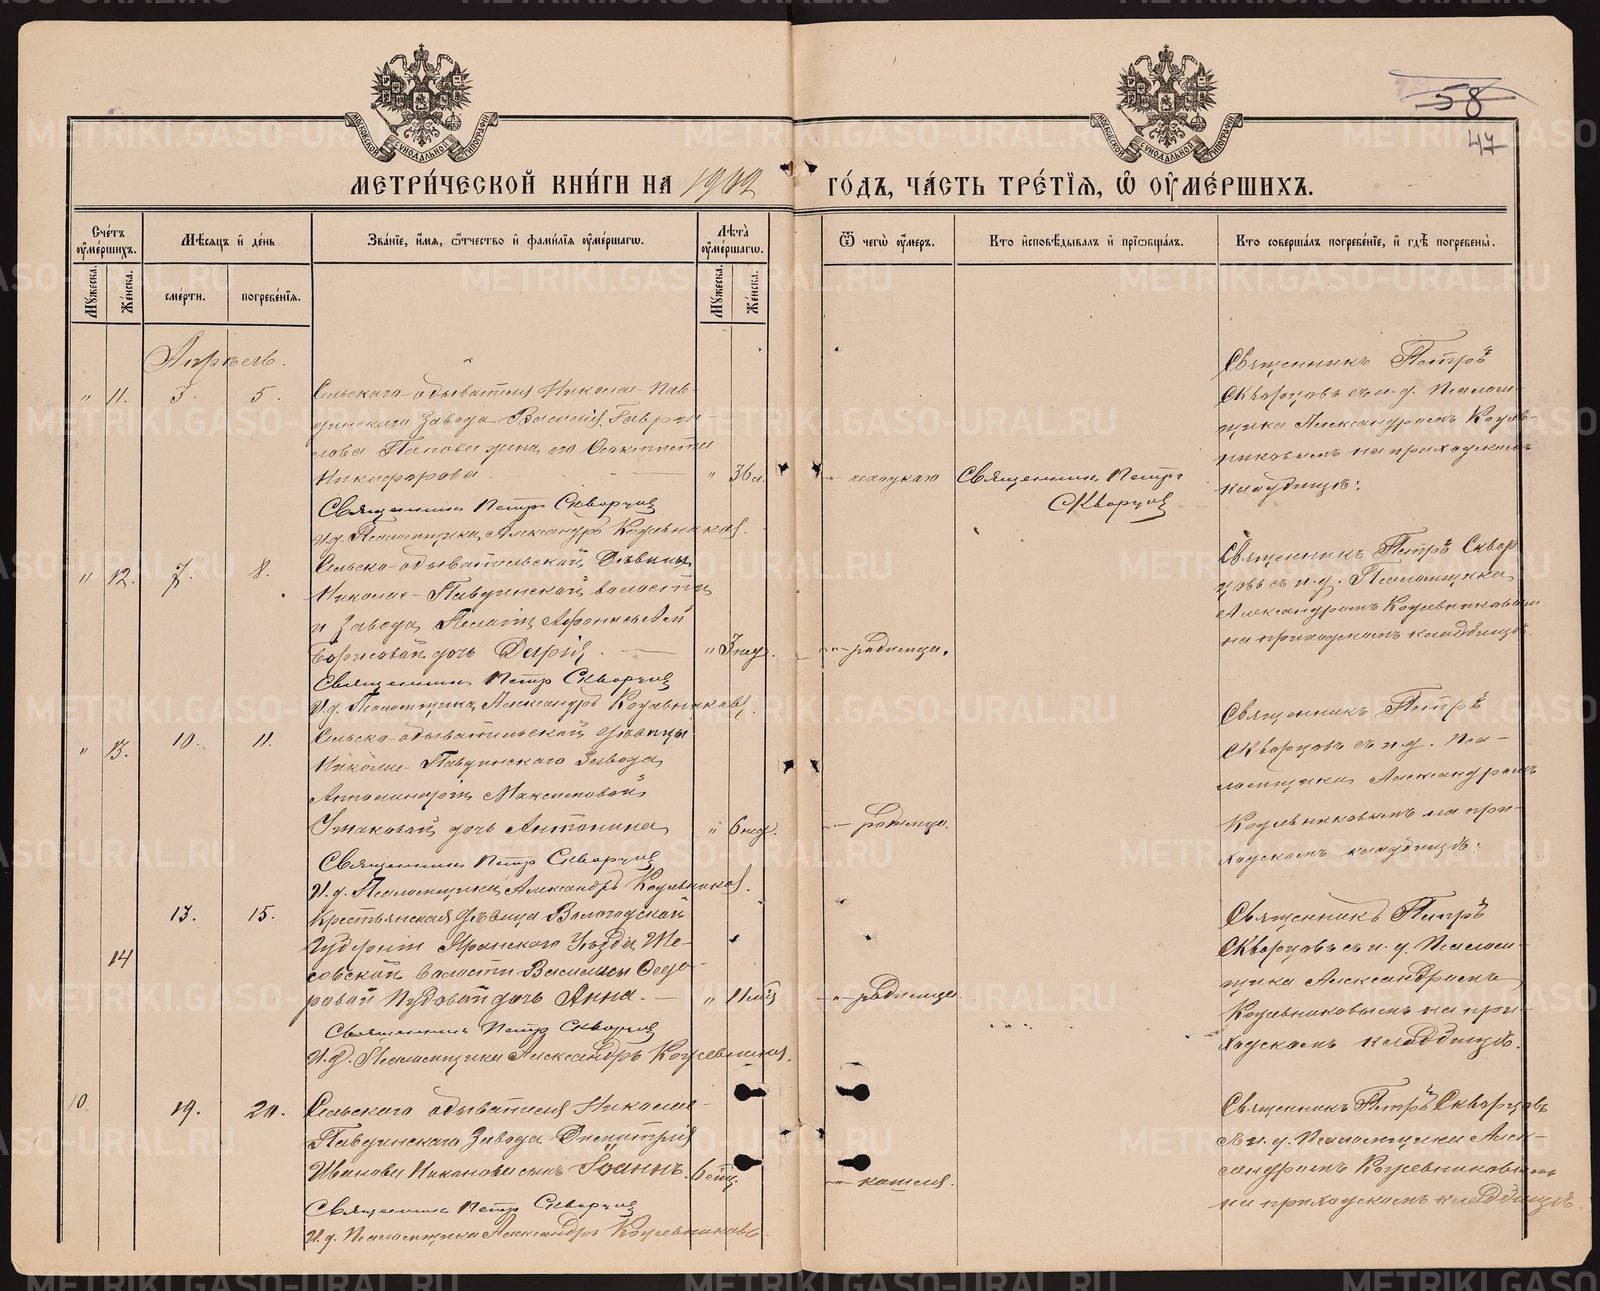 58
47
МОСКОВСКОЙ СѴНОДАЛЬНОЙ ТИПОГРАФІИ
МОСКОВСКОЙ СѴНОДАЛЬНОЙ ТИПОГРАФІИ
МЕТРИ́ЧЕСКОЙ КНИ́ГИ НА 1902 ГО́ДЪ, ЧА́СТЬ ТРЕ́ТІѦ, Ѡ҆ ОУ҆МЕ́РШИХЪ.
Сче́тъ оу҆ме́ршихъ.
Мѹ́жеска.
Же́нска.
Мѣ́сѧцъ и҆ де́нь
сме́рти.
погребе́нїѧ.
Зва́нїе, и҆́мѧ, ѻ҆́тчество и҆ фами́лїѧ оу҆ме́ршагѡ.
Лѣ́та оу҆ме́ршагѡ.
Мѹ́жеска.
Же́нска.
Ѿ чегѡ̀ оу҆́меръ.
Кто̀ и҆сповѣ́дывалъ и҆ прїѡбща́лъ.
Кто̀ соверша́лъ погребе́нїе, и҆ гдѣ̀ погребены̀.
Апрѣль.
" 11. 3. 5.
Сельскаго обывателя Николае-Пав-
динскаго Завода Василія Гаври-
лова жена его
Никифорова. " 36 л.
Священникъ Петръ Скворцов
И. д. Псаломщика Александръ Кожевников.
Священникъ Петръ
Скворцов
Священникъ Петръ
Скворцовъ съ и. д. Псалом-
щика Александромъ Кожев-
никовымъ на приходскомъ
кладбищѣ.
" 12. 7. 8.
Сельско-обывательской Дѣвицы
Николае-Павдинской волости
и Завода Пелагіи Афонасьевой
Борисовой дочь Дарія. " 3 нед. родимца.
Священникъ Петръ Скворцов
И. д. Псаломщика Александръ Кожевниковъ.
Священникъ Петръ Сквор-
цовъ съ и. д. Псаломщика
Александромъ Кожевниковым
на приходскомъ кладбищѣ.
" 13. 10. 11.
Сельско-обывательской дѣвицы
Николае-Павдинскаго Завода
Апполинаріи Максимовой
дочь Антонина " 6 нед. родимца.
Священникъ Петръ Скворцов
И. д. Псаломщика Александръ Кожевников.
Священникъ Петръ
Скворцовъ съ и. д. Пса-
ломщика Александромъ
Кожевниковымъ на при-
ходскомъ кладбищѣ.
14 13. 15.
Крестьянская дѣвица Вологодской
Губерніи Яренскаго Уѣзда Ше-
совской волости Василисы Федо-
ровой Пудовой дочь Анна. " 11 мѣс родимца.
Священникъ Петръ Скворцов
И. д. Псаломщика Александръ Кожевников.
Священникъ Петръ
Скворцовъ съ и. д. Псалом-
щика Александромъ
Кожевниковымъ на при-
ходскомъ кладбищѣ.
10 19. 20.
Сельскаго обывателя Николае-
Павдинскаго Завода Димитрія
Иванова сынъ Іоаннъ. кашля.
Священникъ Петръ Скворцов
И. д. Псаломщика Александръ Кожевниковъ.
Священникъ Петръ Скворцовъ
съ и. д. Псаломщика Алек-
сандромъ Кожевниковымъ
на приходскомъ кладбищѣ.
METRIKI.GASO-URAL.RU